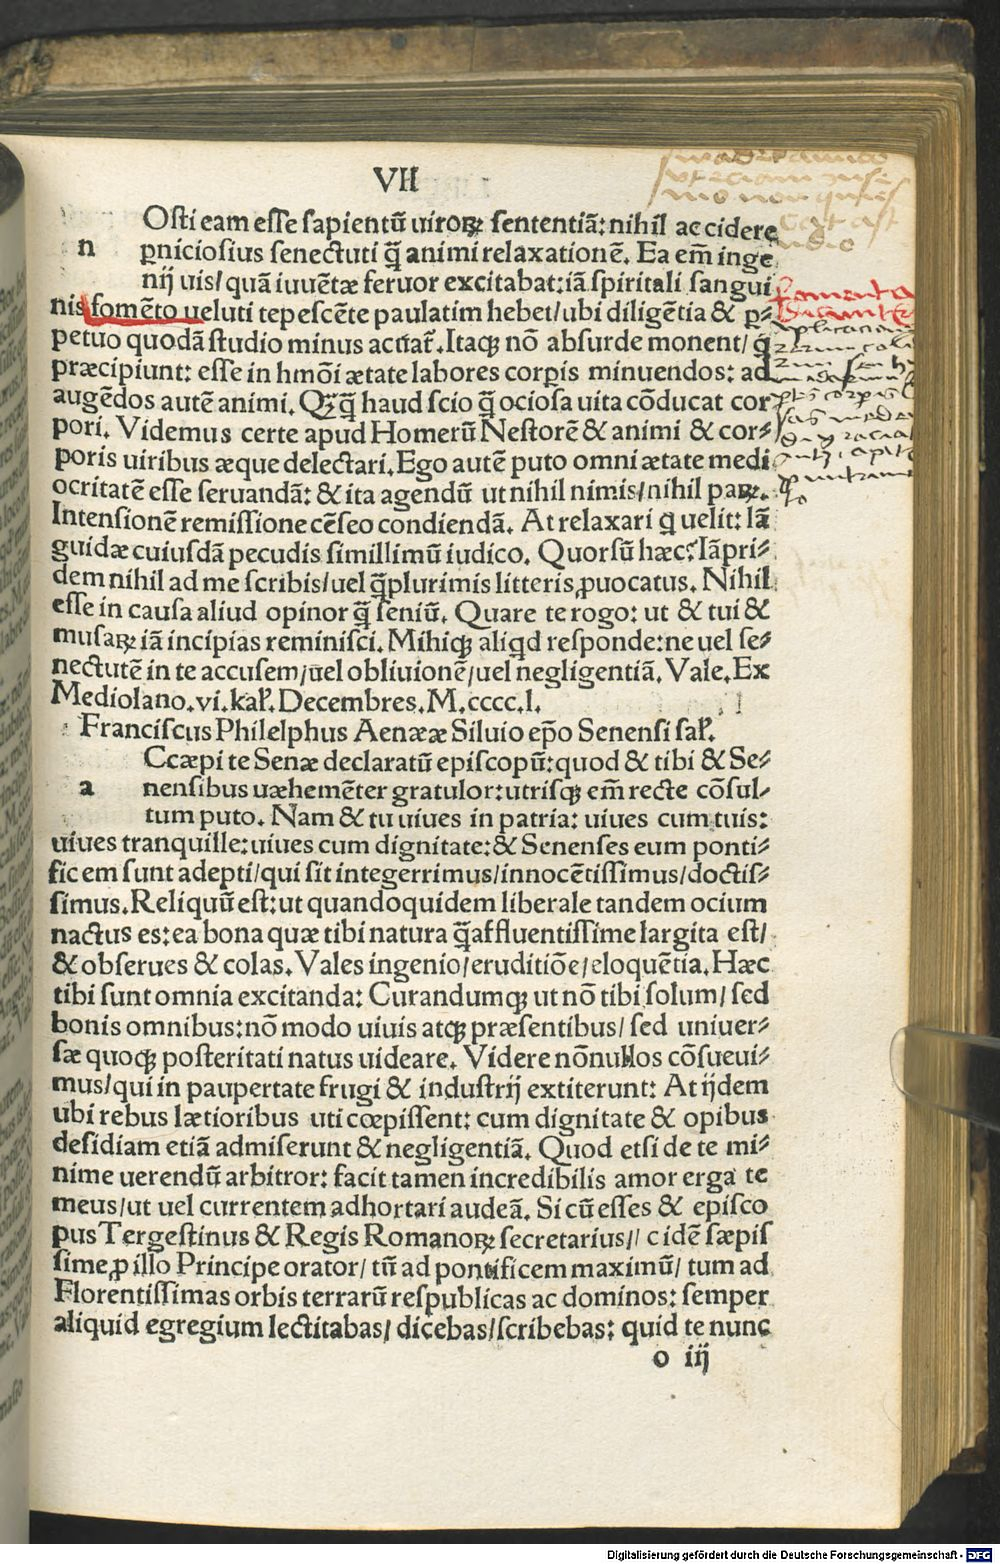 VII
Osti eam esse sapientū uiroꝝ sententiā: nihil accidere
n ꝑniciosius senectuti q̄ animi relaxationē. Ea em̄ inge
nij uis/ quā iuuētæ feruor excitabat: iā spiritali sangui
nis fomēto ueluti tepescēte paulatim hebet/ ubi diligētia & ꝑ⸗
petuo quodā studio minus acuat᷑. Itaqꝫ nō absurde monent/ q̄
præcipiunt: esse in hmōi ætate labores corꝑis minuendos: ad
augēdos autē animi. Qꝫq̄ haud scio q̄ ociosa uita cōducat cor⸗
pori. Videmus certe apud Homerū Nestorē & animi & cor⸗
poris uiribus æque delectari. Ego autē puto omni ætate medi
ocritatē esse seruandā: & ita agendū ut nihil nimis/ nihil paꝝ.
Intensionē remissione cēseo condiendā. At relaxari q̄ uelit: lā
guidæ cuiusdā pecudis simillimū iudico. Quorsū hæc? Iāpri⸗
dem nihil ad me scribis/ uel q̄plurimis litteris ꝓuocatus. Nihil
esse in causa aliud opinor q̄ seniū. Quare te rogo: ut & tui &
musaꝝ iā incipias reminisci. Mihiqꝫ aliqd responde: ne uel se⸗
nectutē in te accusem/ uel obliuionē/ uel negligentiā. Vale. Ex
Mediolano. vi. kal̓. Decembres. M. cccc. l.
Franciscus Philelphus Aenææ Siluio ep̄o Senensi sal̓.
Ccæpi te Senæ declaratū episcopū: quod & tibi & Se⸗
a nensibus uæhemēter gratulor: utrisqꝫ em̄ recte cōsul⸗
tum puto. Nam & tu uiues in patria: uiues cum tuis:
uiues tranquille: uiues cum dignitate: & Senenses eum ponti⸗
ficem sunt adepti/ qui sit integerrimus/ innocētissimus/ doctis⸗
simus. Reliquū est: ut quandoquidem liberale tandem ocium
nactus es: ea bona quæ tibi natura q̄affluentissime largita est/
& obserues & colas. Vales ingenio/ eruditiōe/ eloquētia. Hæc
tibi sunt omnia excitanda: Curandumqꝫ ut nō tibi solum/ sed
bonis omnibus: nō modo uiuis atqꝫ præsentibus/ sed uniuer⸗
sæ quoqꝫ posteritati natus uideare. Videre nōnullos cōsueui⸗
mus/ qui in paupertate frugi & industrij extiterunt: At ijdem
ubi rebus lætioribus uti cœpissent: cum dignitate & opibus
desidiam etiā admiserunt & negligentiā. Quod etsi de te mi⸗
nime uerendū arbitror: facit tamen incredibilis amor erga te
meus/ ut uel currentem adhortari audeā. Si cū esses & episco
pus Tergestinus & Regis Romanoꝝ secretarius// cidē sæpis
sime ꝓ illo Principe orator/ tū ad pontificem maximū/ tum ad
Florentissimas orbis terrarū respublicas ac dominos: semper
aliquid egregium lectitabas/ dicebas/ scribebas: quid te nunc
o iij
Digitalisierung gefördert durch die Deutsche Forschungsgemeinschaft - DFG